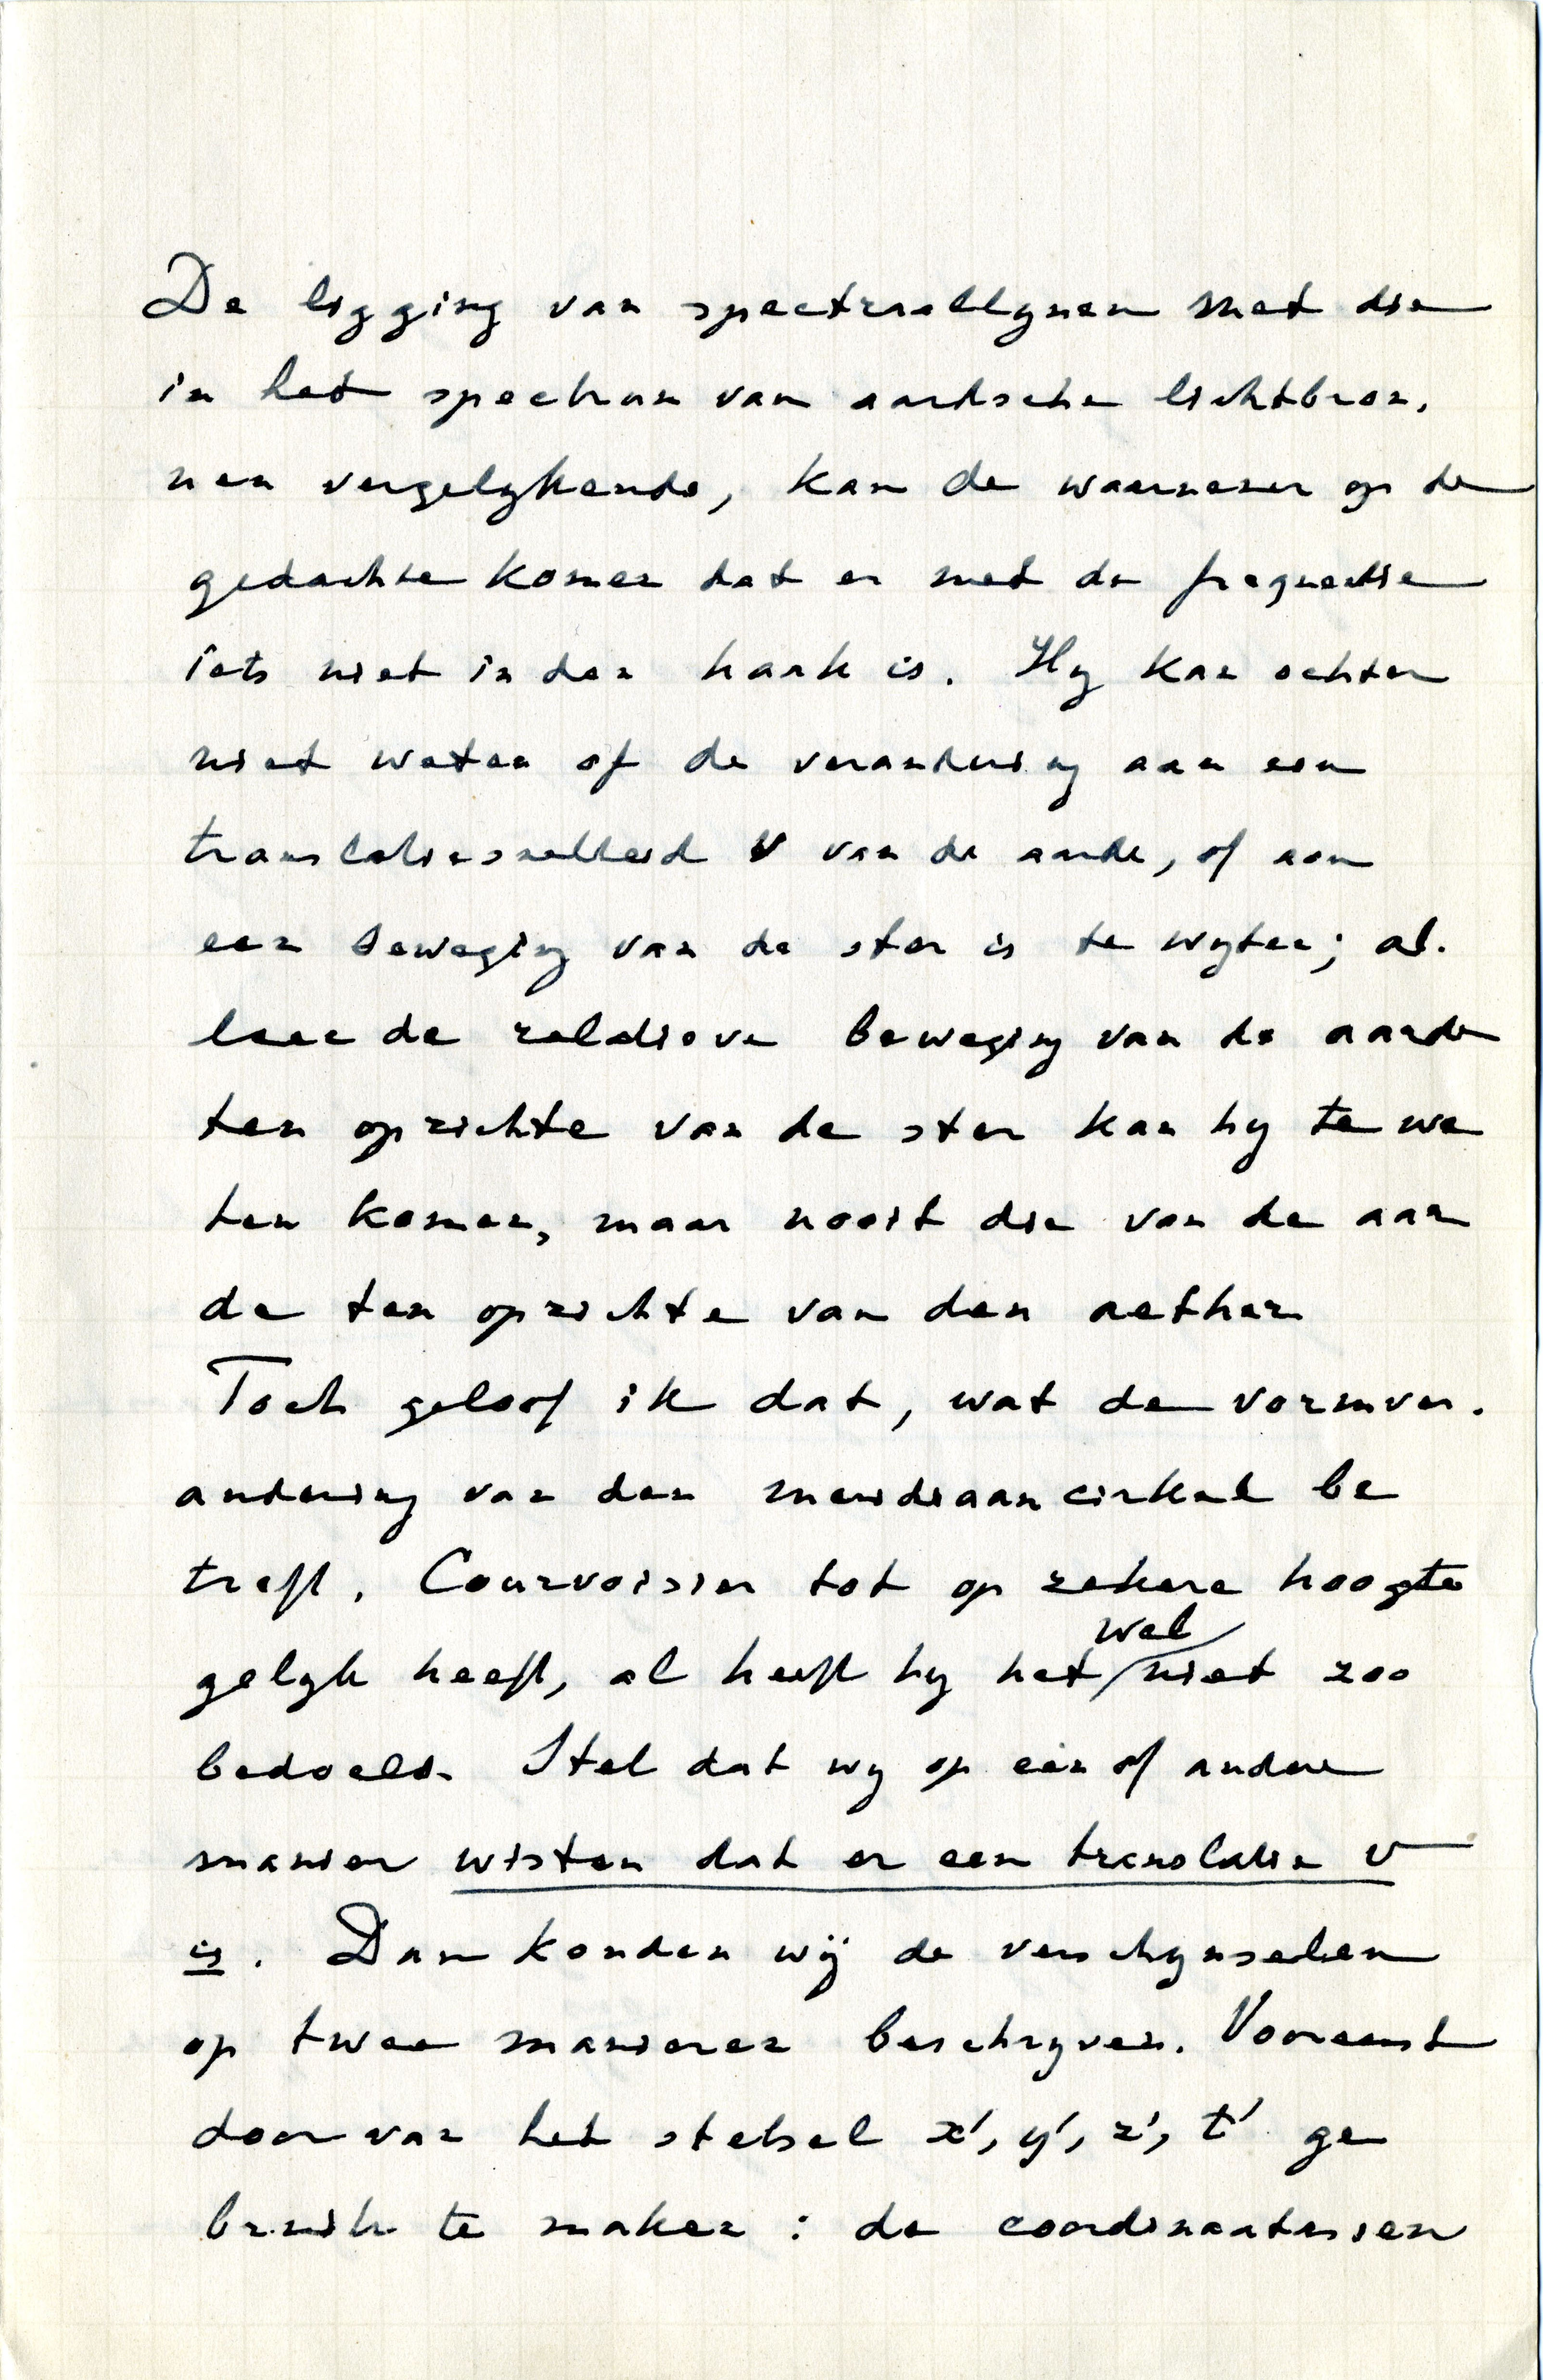 De ligging van spectraallynen met die
in het spectrum van aardsche lichtbron.
nen vergelykende, kan de waarnemer op de
gedachte komen dat er met de frequentie
iets niet in den haak is. Hy kan echter
niet weten of de verandering aan een
translatiesnelheid v van de aarde, of aan
een beweging van de ster is te wyten; al.
leen de relatieve beweging van de aarde
ten opzichte van de ster kan hy te we
ten komen, maar nooit die van de aar
de ten opzichte van den aether
Toch geloof ik dat, wat de vormver.
andering van den meridiaancirkel be
treft, Courvoisier tot op zekere hoogte
gelyk heeft, al heeft hy het wel niet zoo
bedoeld. Stel dat wy op een of andere
manier wisten dat er een translatie v
is. Dan konden wij de verschynselen
op twee manieren beschryven. Vooreerst
door van het stelsel x′, y′, z′, t′ ge
bruik te maken : de coordinaatassen